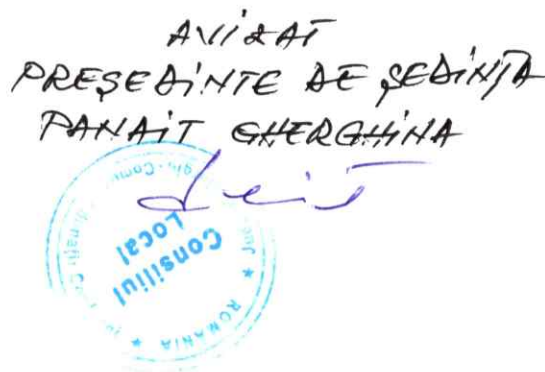 AVIZAT
PREȘEDINTE DE ȘEDINȚA
PANAIT GHERGHINA
Consiliul
Local
ROMANIA